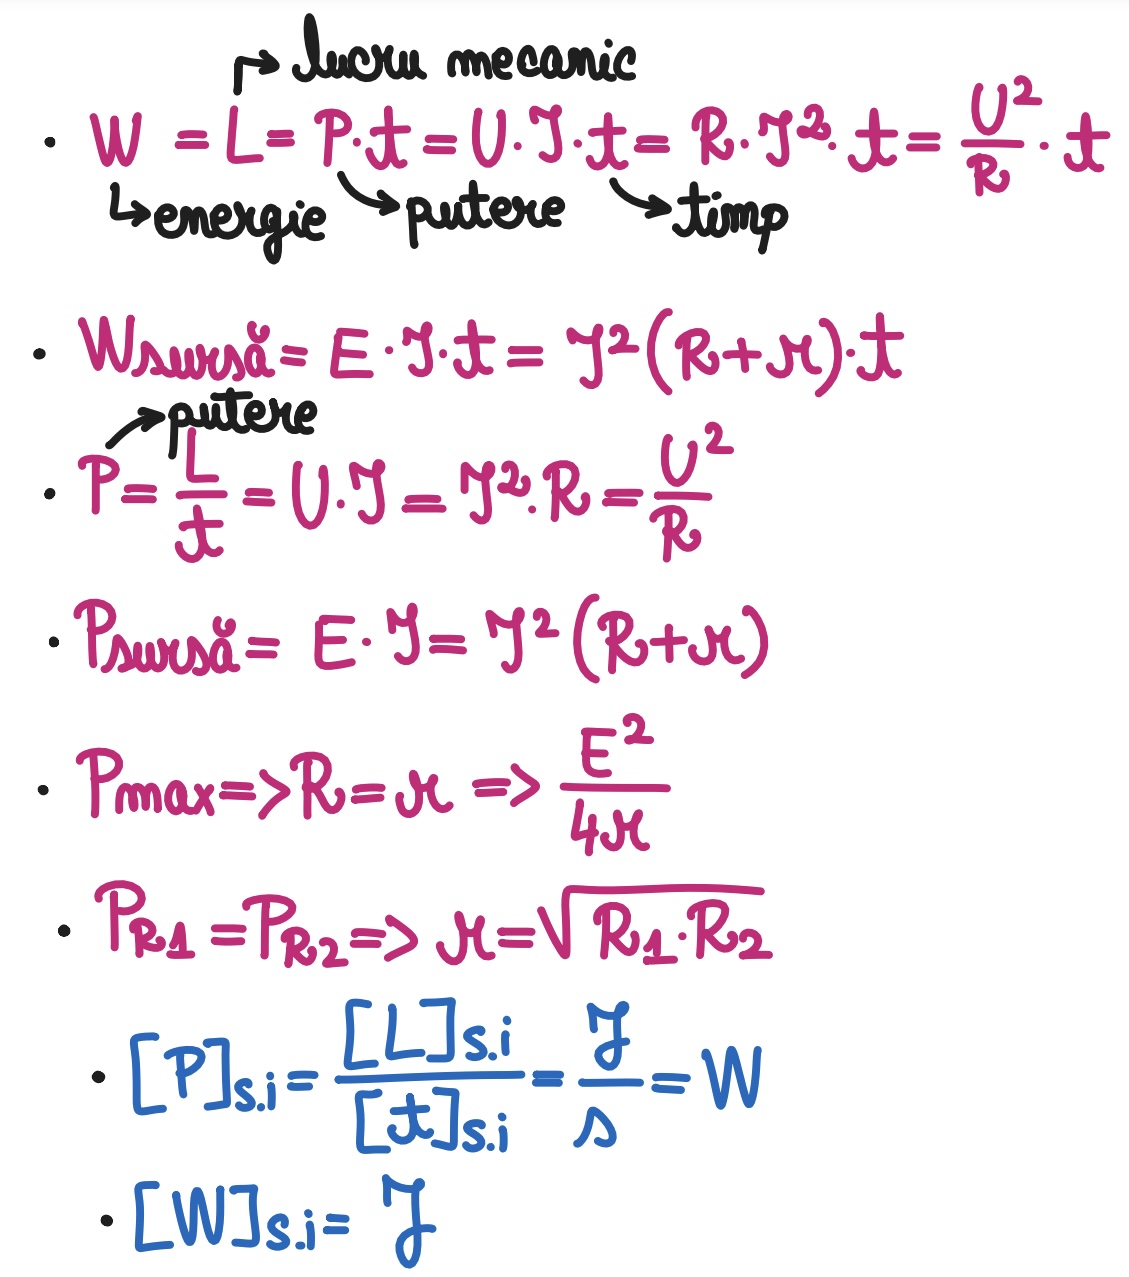 lucru mecanic
• W = L = P · t = U · I · t = R · I² · t = U²/R · t
energie putere timp
• Wsursă = E · I · t = I² (R + r) · t
putere
• P = L/t = U · I = I² · R = U²/R
• Psursă = E · I = I² (R + r)
• Pmax => R = r => E²/4r
• PR1 = PR2 => r = √R1 · R2
• [P]s.i = [L]s.i/[t]s.i = J/s = W
• [W]s.i = J